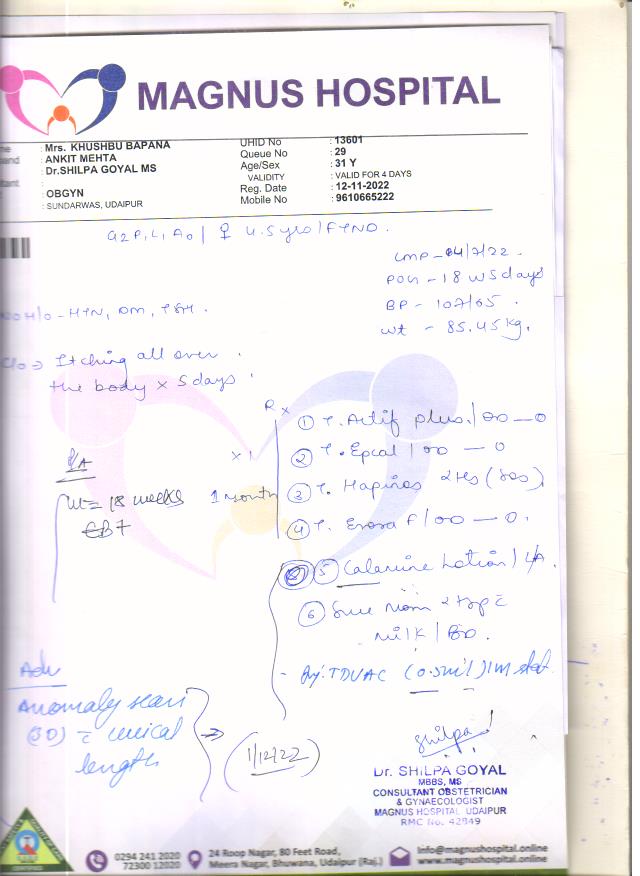 MAGNUS HOSPITAL
Mrs. KHUSHBU BAPANA
ANKIT MEHTA
Dr.SHILPA GOYAL MS
: OBGYN
: SUNDARWAS, UDAIPUR
UHID No : 13601
Queue No : 29
Age/Sex : 31 Y
VALIDITY : VALID FOR 4 DAYS
Reg. Date : 12-11-2022
Mobile No : 9610665222
G2P1L1A0 / ♀ 4.5 yrs / FTND.
LMP - 04/7/22.
POG - 18 w 5 days
BP - 107/65.
wt - 85.45 kg.
H/o - HTN, DM,
C/o → Itching all over
the body x 5 days.
Rx
① T. Actif plus. / OD — 0
② T. Epcal / OD — 0
③ T. 2 Hs (SOS)
④ T. F / OD — 0.
⑤ Calamine Lotion / L/A.
⑥ Mom 2 tsp c̄
milk / BD.
- Inj. TDVAC (0.5ml) IM stat.
P/A
Ut = 18 weeks
x 1
1 month
Adv
Anomaly scan
(3D) c̄ cervical
length
→ (1/12/22)
Shilpa
Dr. SHILPA GOYAL
MBBS, MS
CONSULTANT OBSTETRICIAN
& GYNAECOLOGIST
MAGNUS HOSPITAL UDAIPUR
RMC No. 42849
0294 241 2020
72300 12020
24 Roop Nagar, 80 Feet Road,
Meera Nagar, Bhuwana, Udaipur (Raj.)
Info@magnushospital.online
www.magnushospital.online